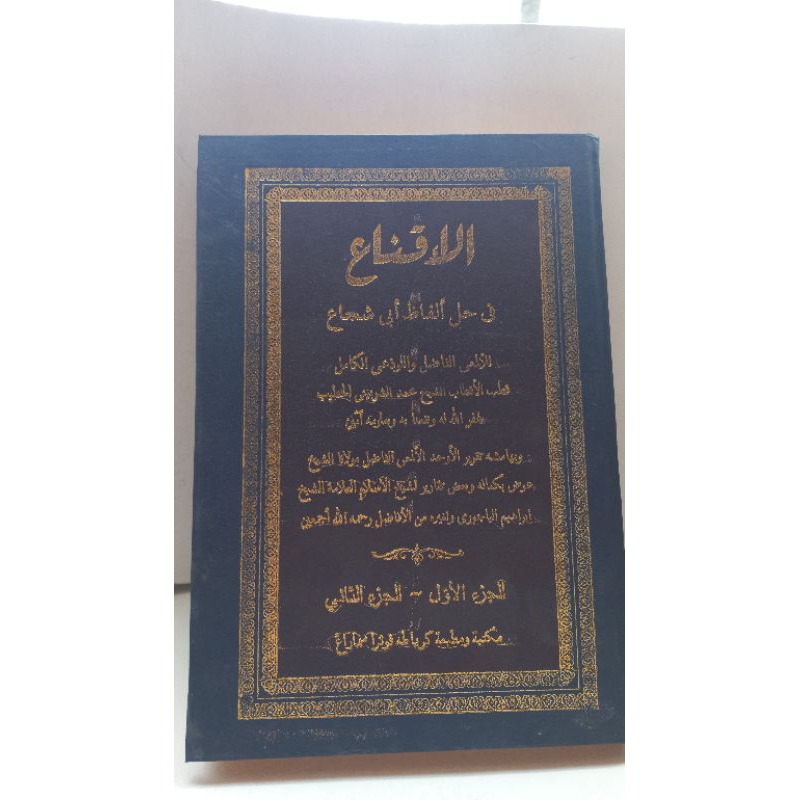 الاقناع
فى حل ألفاظ أبى شجاع
للألمعى الفاضل واللوذعى الكامل
قطب الأقطاب الشيخ محمد الشربينى الخطيب
غفر الله له ونفعنا به وبعلومه آمين
وبهامشه تقرير الأوحد الألمعى الفاضل مولانا الشيخ
عوض بكماله وبعض تقارير لشيخ الاسلام العلامة الشيخ
ابراهيم الباجورى ولغيره من الأفاضل رحمه الله أجمعين
الجزء الأول - الجزء الثانى
مكتبة ومطبعة كرياطه فوترا سماراغ